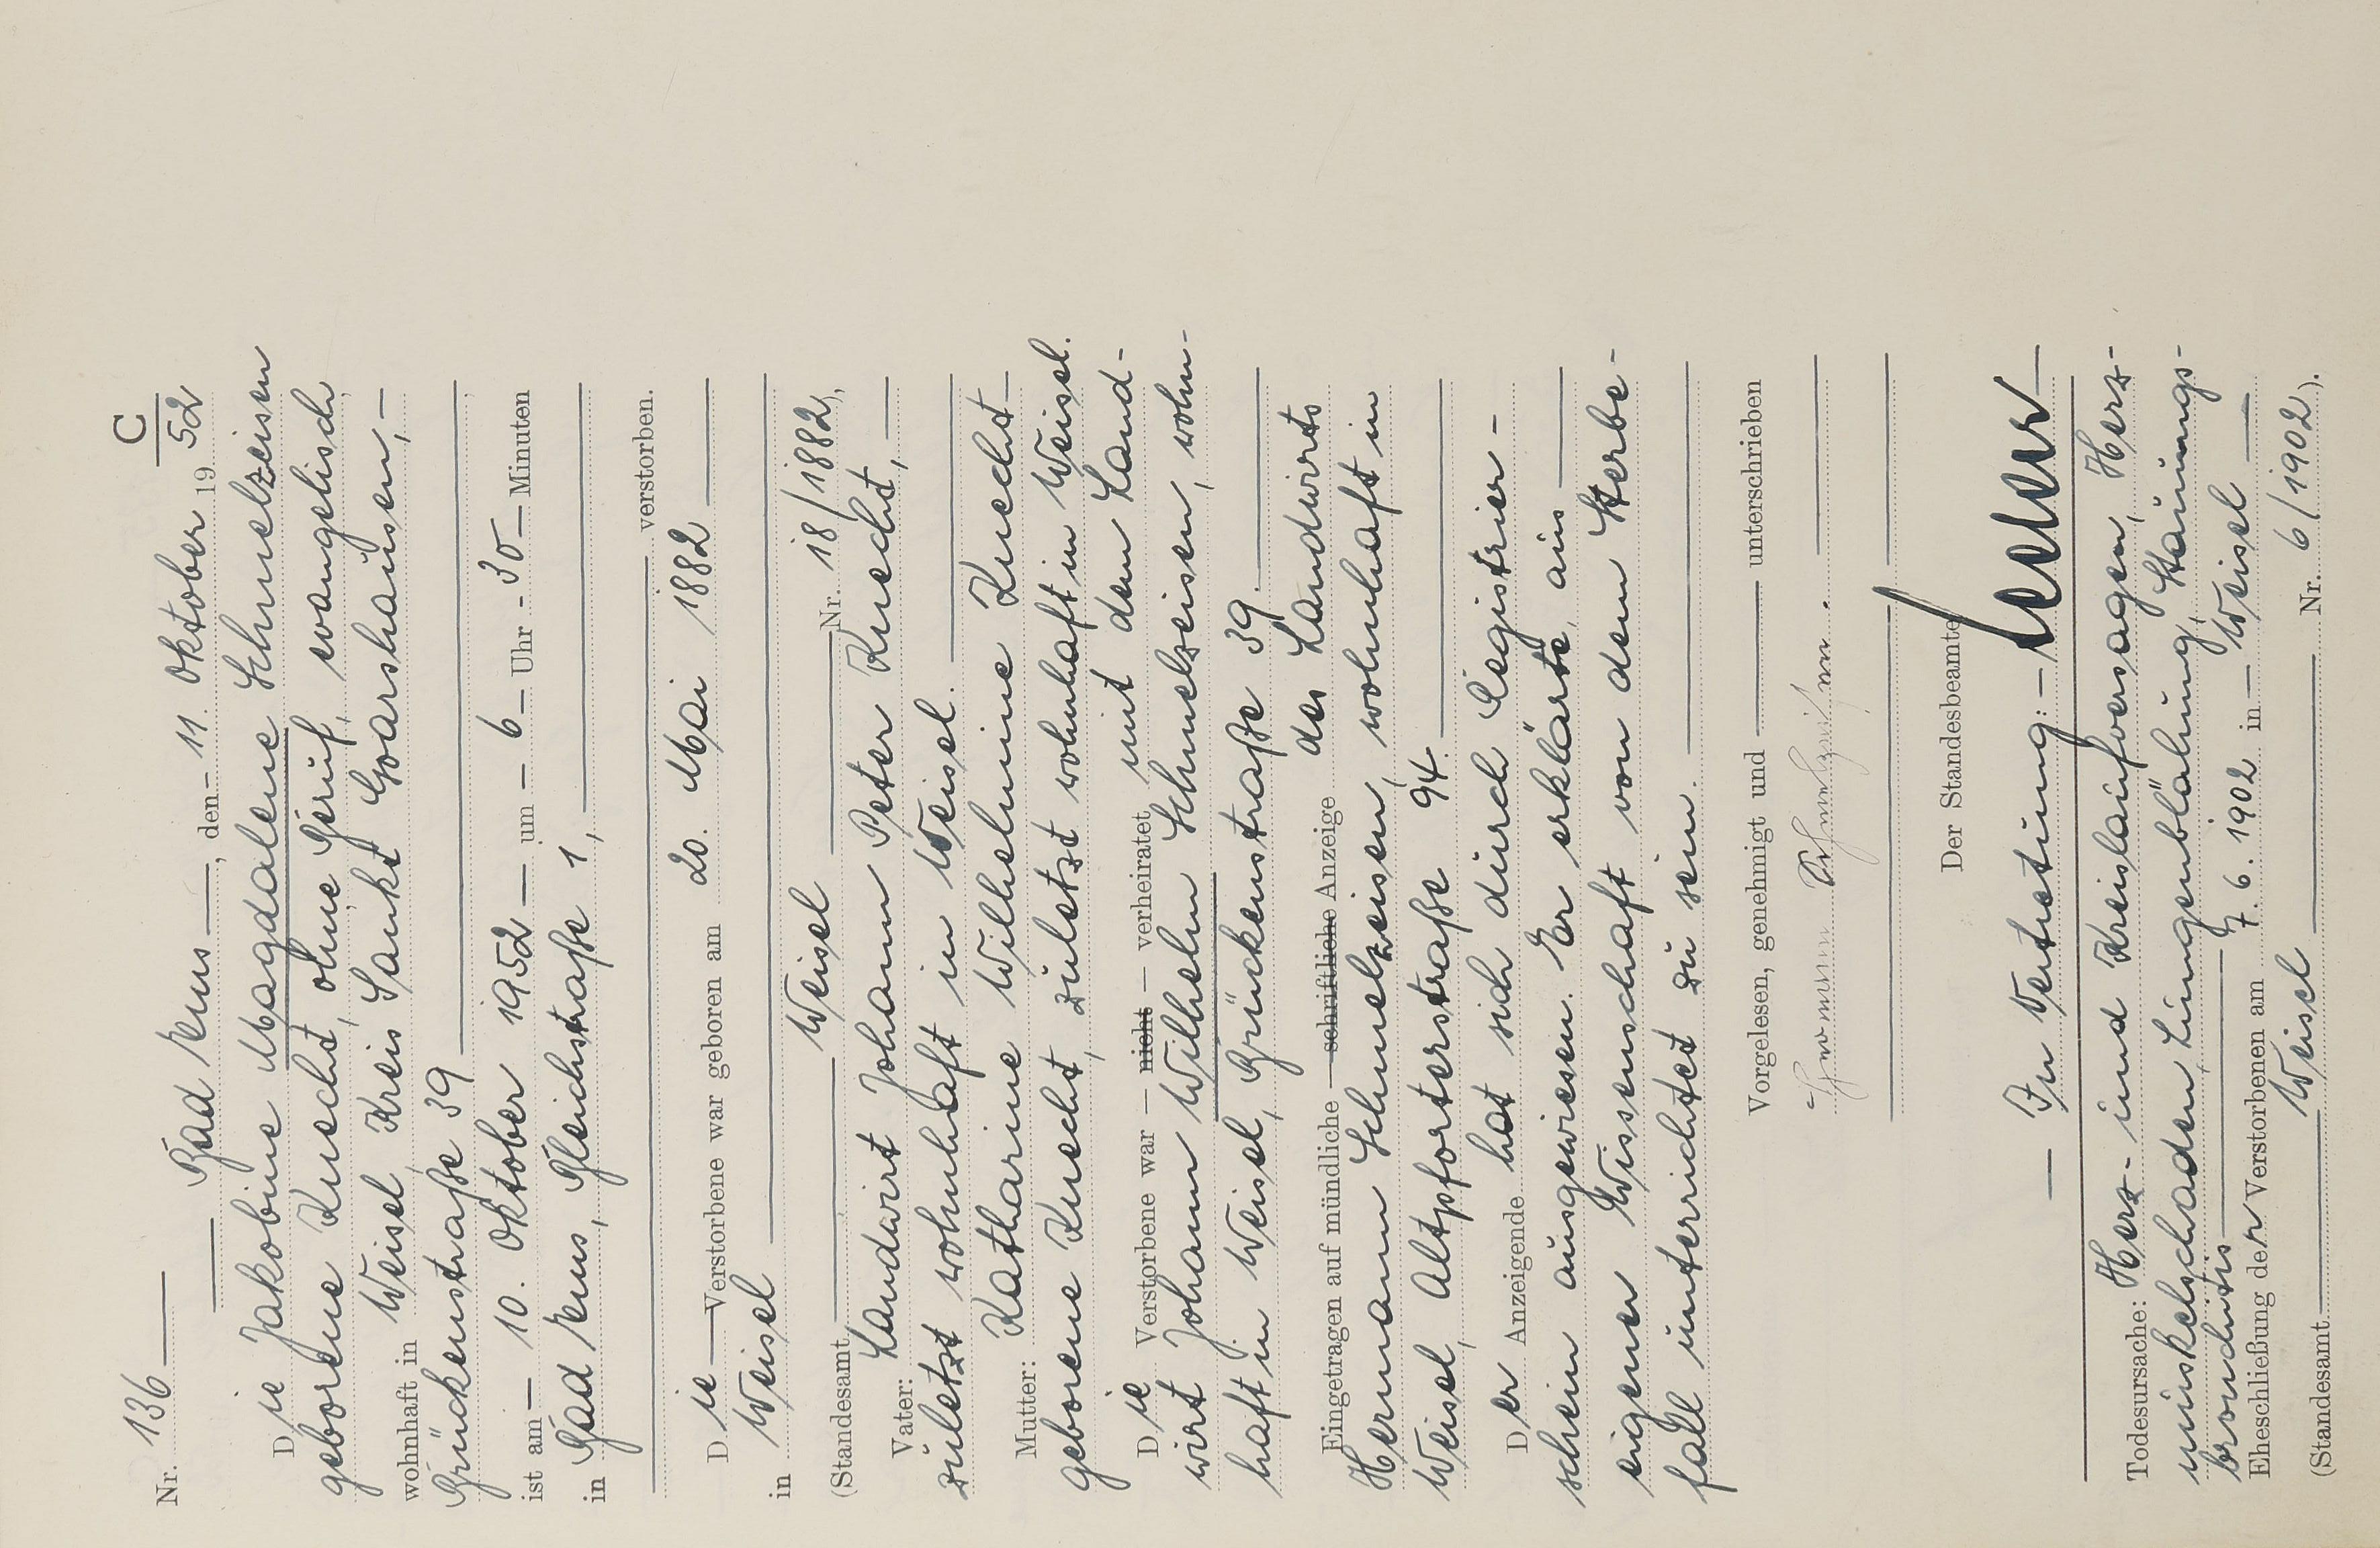 C
Nr. 136
Bad Ems, den 11. Oktober 1952
Die Jakobine Magdalene Schmelzeisen
geborene Knecht, ohne Beruf, evangelisch
wohnhaft in Weisel, Kreis Sankt Goarshausen,
Brückenstraße 39
ist am 10. Oktober 1952 um 6 Uhr 30 Minuten
in Bad Ems, Bleichstraße 1,
verstorben.
Die Verstorbene war geboren am 20. Mai 1882
in Weisel
(Standesamt Weisel Nr. 18/1882),
Vater: Landwirt Johann Peter Knecht,
zuletzt wohnhaft in Weisel.
Mutter: Katharine Wilhelmine Knecht
geborene Knecht, zuletzt wohnhaft in Weisel.
Die Verstorbene war — nicht — verheiratet mit dem Land-
wirt Johann Wilhelm Schmelzeisen, wohn-
haft in Weisel, Brückenstraße 39.
Eingetragen auf mündliche — schriftliche Anzeige des Landwirts
Hermann Schmelzeisen, wohnhaft in
Weisel, Altpforterstraße 94.
Der Anzeigende hat sich durch Registrier-
schein ausgewiesen. Er erklärte, aus
eigener Wissenschaft von dem Sterbe-
fall unterrichtet zu sein.
Vorgelesen, genehmigt und unterschrieben
Hermann Schmelzeisen
Der Standesbeamte
In Vertretung:
Todesursache: Herz- und Kreislaufversagen, Herz-
muskelschaden, Lungenblähung, Stauungs-
bronchitis
Eheschließung der Verstorbenen am 7. 6. 1902 in Weisel
(Standesamt Weisel Nr. 6/1902).